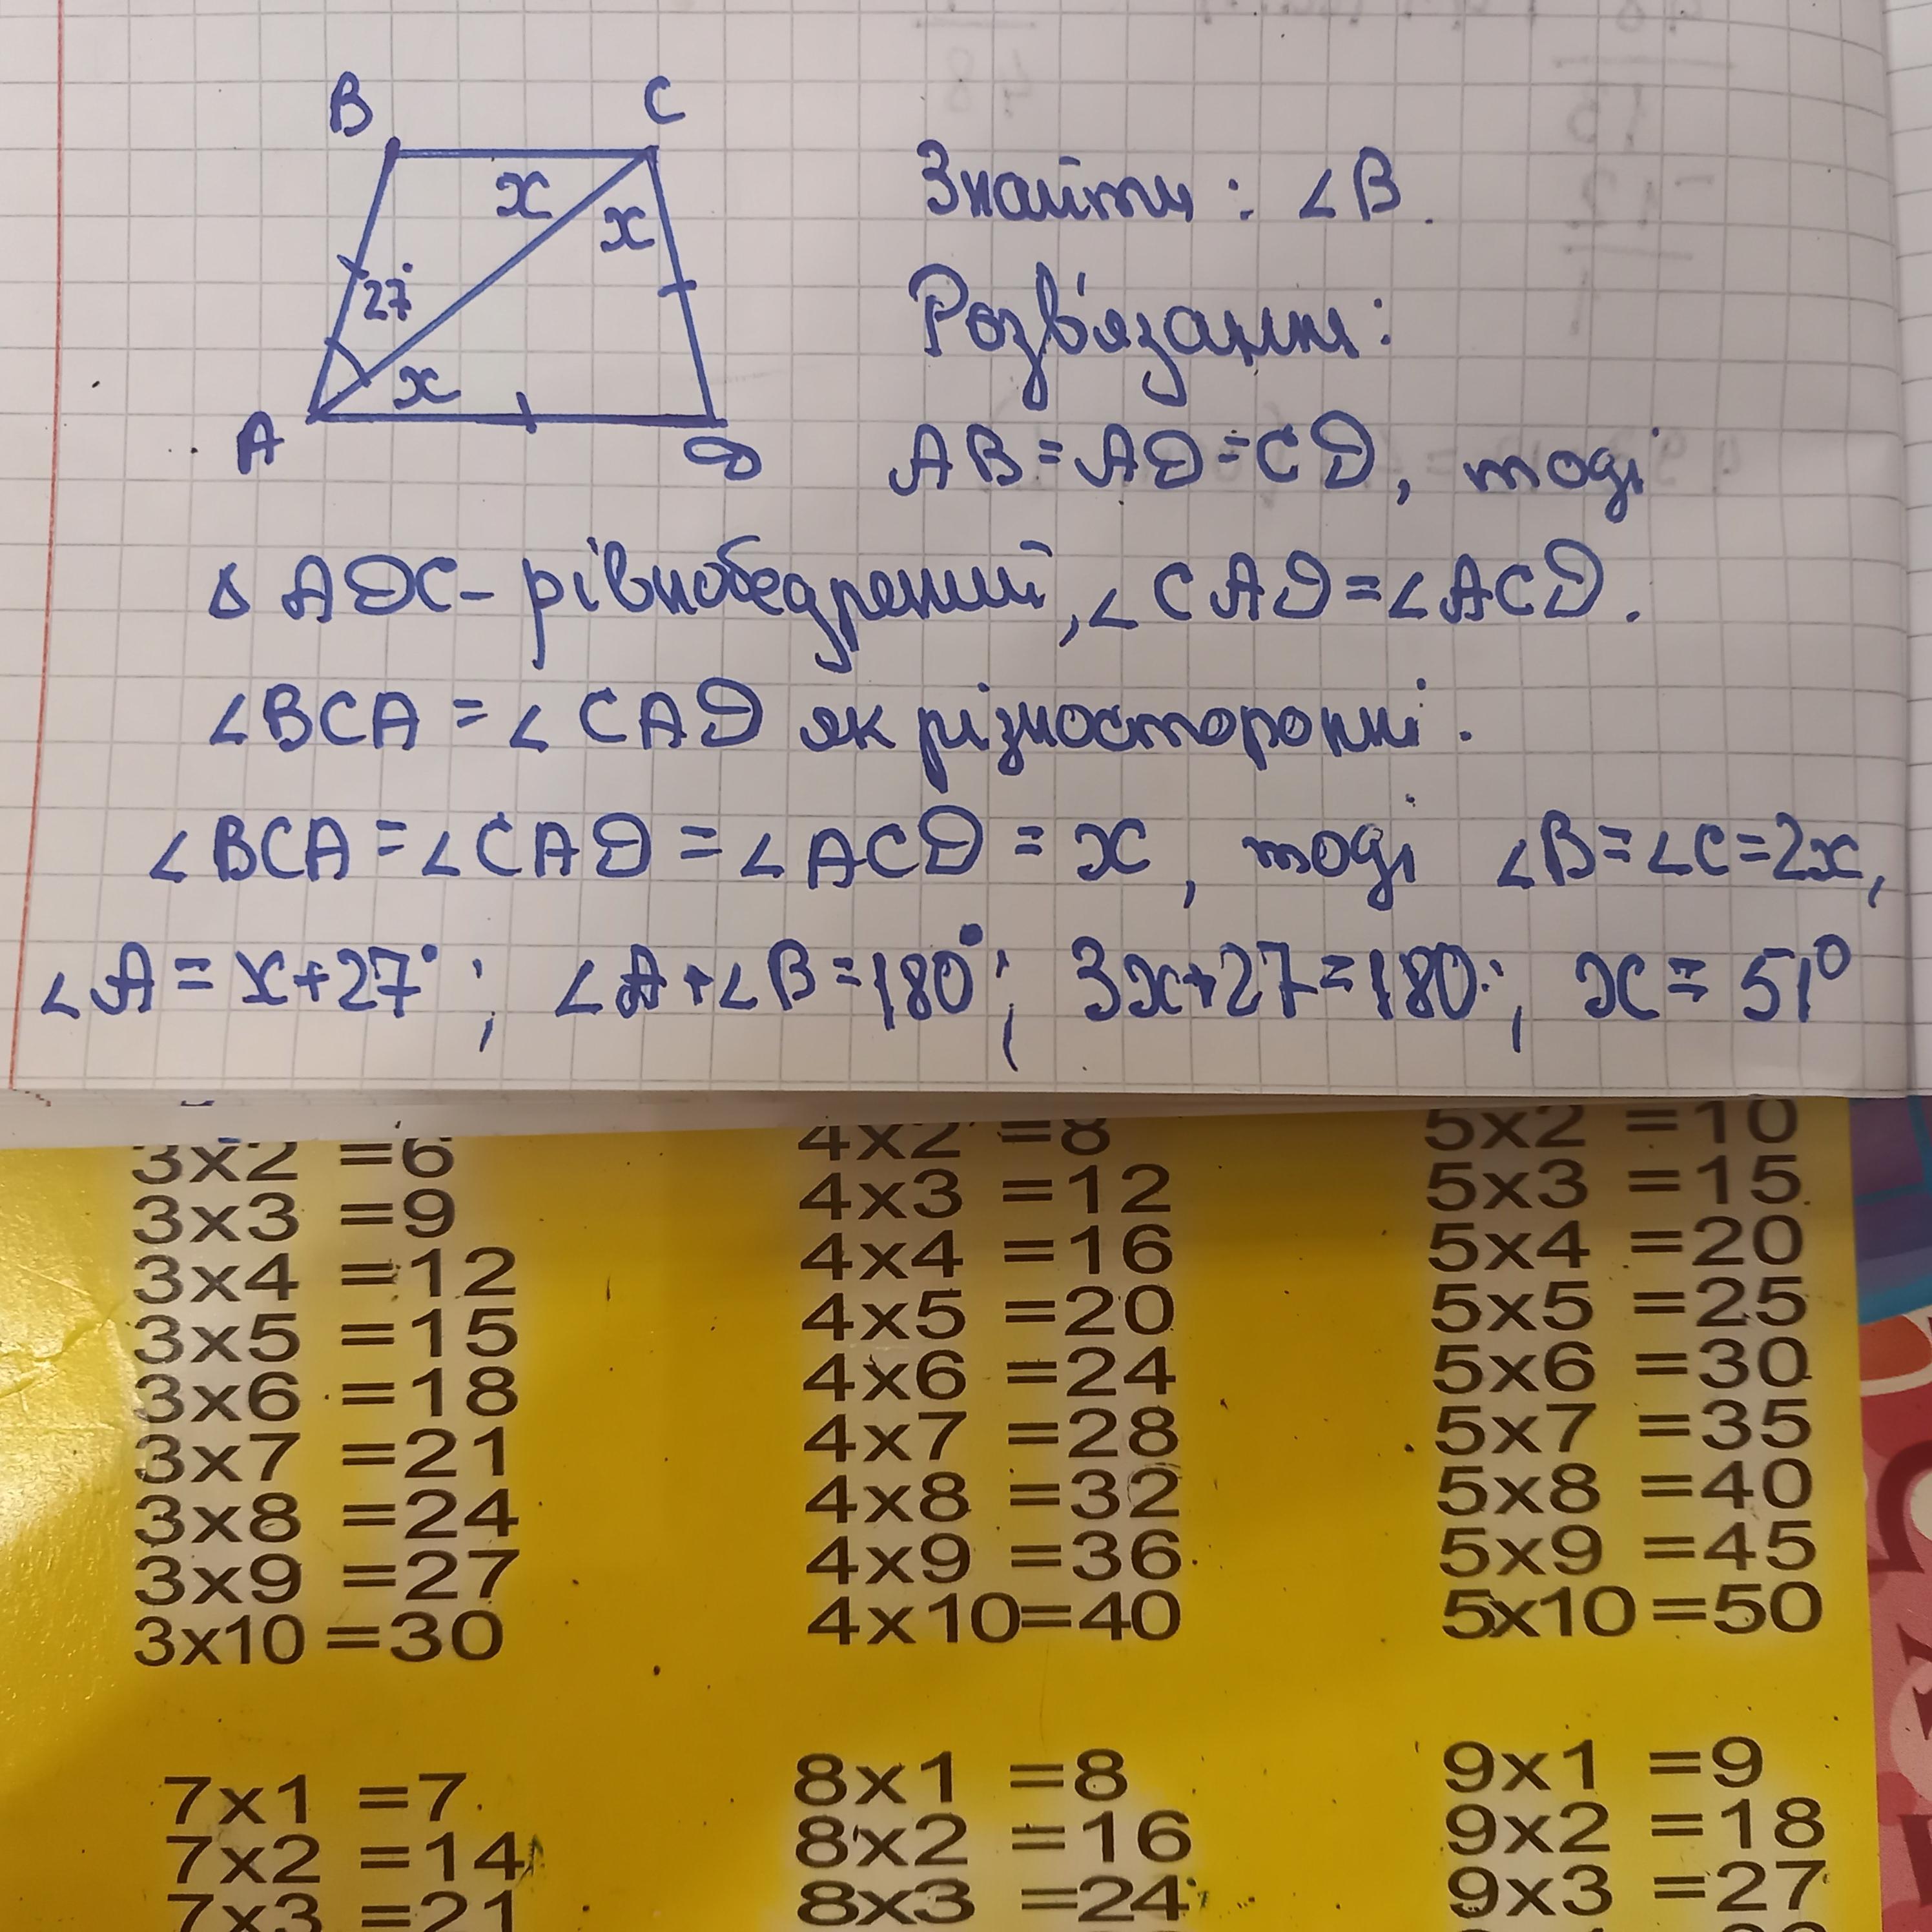 B
C
x
x
27°
x
A
D
Знайти: ∠B.
Розв'язання:
AB=AD=CD, тоді
△ADC- рівнобедрений, ∠CAD=∠ACD.
∠BCA = ∠CAD як різносторонні.
∠BCA=∠CAD=∠ACD=x, тоді ∠B=∠C=2x,
∠A=x+27°; ∠A+∠B=180°; 3x+27=180; x=51°
3x2 =6
3x3 =9
3x4 =12
3x5 =15
3x6 =18
3x7 =21
3x8 =24
3x9 =27
3x10 =30
4x2 =8
4x3 =12
4x4 =16
4x5 =20
4x6 =24
4x7 =28
4x8 =32
4x9 =36
4x10=40
5x2 =10
5x3 =15
5x4 =20
5x5 =25
5x6 =30
5x7 =35
5x8 =40
5x9 =45
5x10 =50
7x1 =7
7x2 =14
7x3 =21
8x1 =8
8x2 =16
8x3 =24
9x1 =9
9x2 =18
9x3 =27